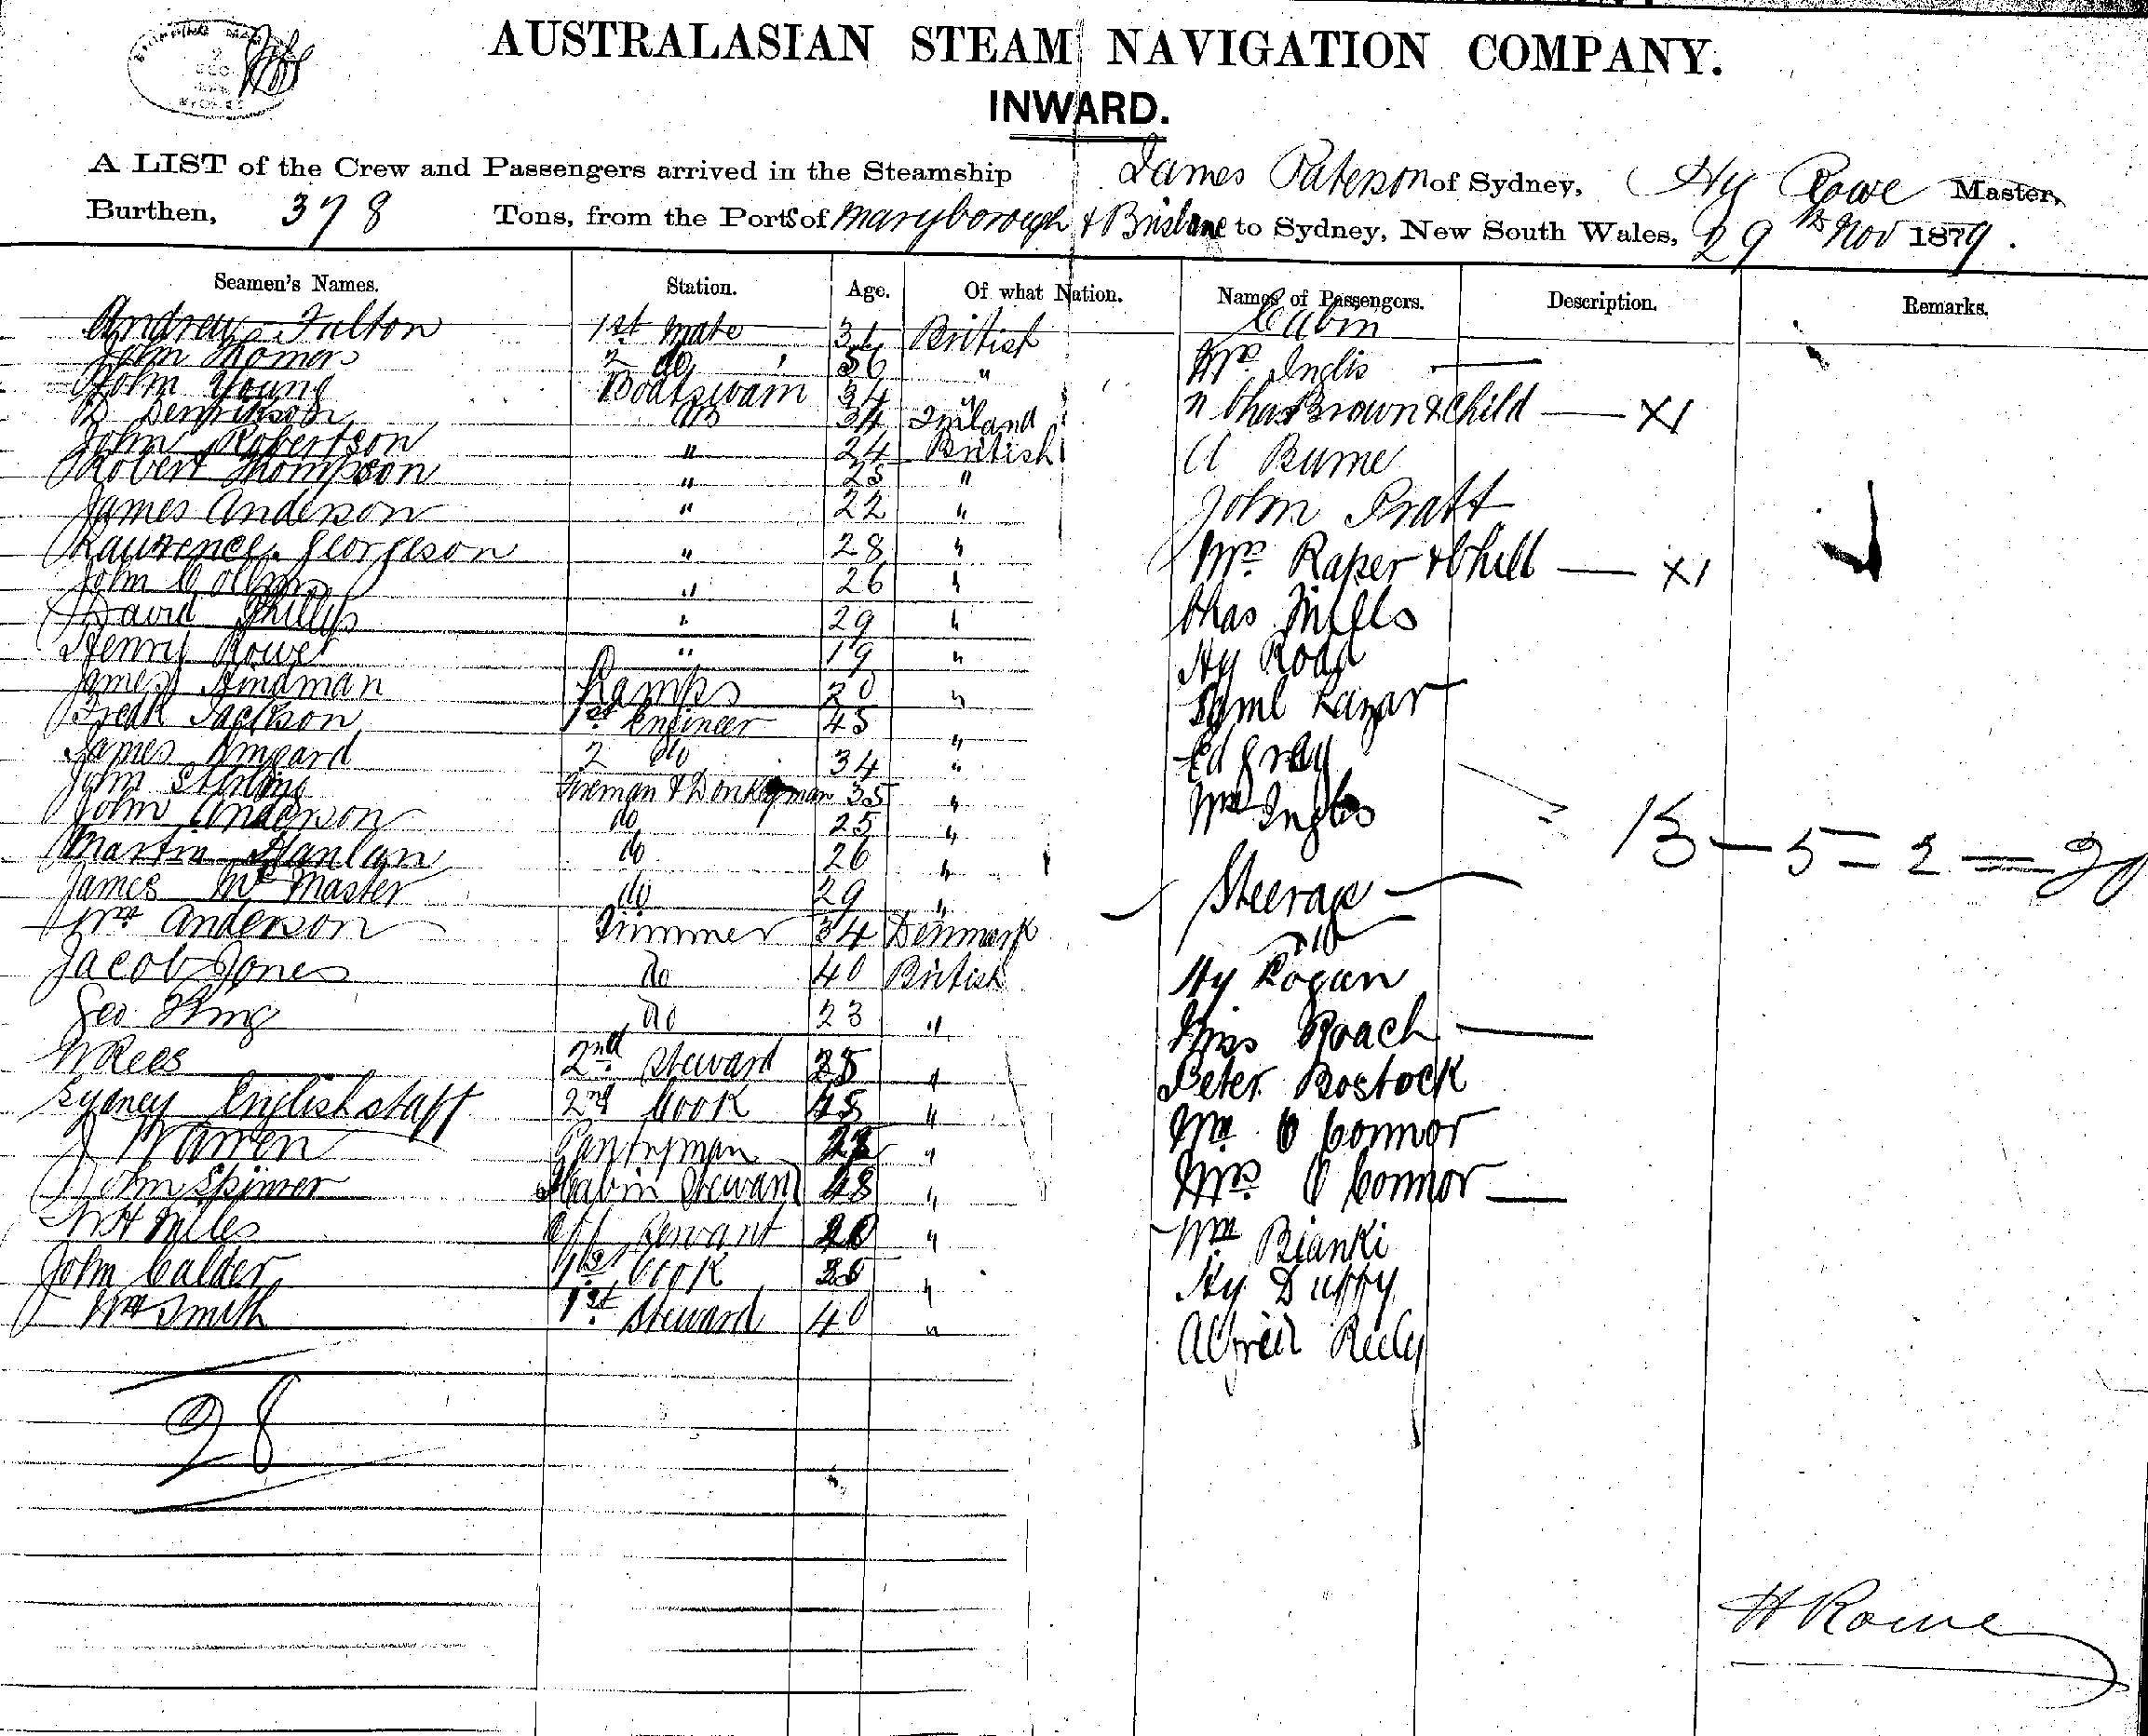 AUSTRALASIAN STEAM NAVIGATION COMPANY.
INWARD.
A LIST of the Crew and Passengers arrived in the Steamship James Paterson of Sydney, Hy Rowe Master,
Burthen, 378 Tons, from the Ports of Maryborough & Brisbane to Sydney, New South Wales, 29th Nov 1879.
Seamen's Names. Station. Age. Of what Nation. Names of Passengers. Description. Remarks.
Andrew Fulton 1st Mate British
Cabin
John 2 do 56 "
Mrs. Inglis
John Young Boatswain 34 "
" Chas Brown & Child — X1
AB 34
John Robertson " 24 British
A Burne
Robert Thompson " 25 "
James Anderson " 22 "
John Pratt
Laurence Georgeson " 28 "
Mrs. Raper & Child — X1
John " 26 "
David Phillips " 29 "
Chas Mills
Henry Rower " 19 "
Hy Road
James Hindman Lamps 20 "
Saml Lazar
Fredk Jackson 1st Engineer 45 "
James 2 do 34 "
Ed Gray
John Stirling Fireman & Donkeyman 35 "
Wm Inglis
John Anderson do 25 "
13 — 5 = 2 = 20
Martin Hanlan do 26 "
James McMaster do 29 "
Steerage
Wm Anderson Trimmer 34 Denmark
Jacob Jones do 40 British
Hy Logan
Geo King do 23 "
Miss Roach —
W Rees 2nd Steward 25 "
Peter Bostock
Sydney Englishstaff 2nd Cook 45 "
Wm O Connor
J Warren Pantryman 22 "
Mrs. O Connor —
John Spinner Cabin Steward 48 "
W H Miles Off Servant 20 "
Wm Bianki
John Calder 1st Cook "
Hy Duffy
Wm Smith 1st Steward 40 "
Alfred Reely
28
H Rowe